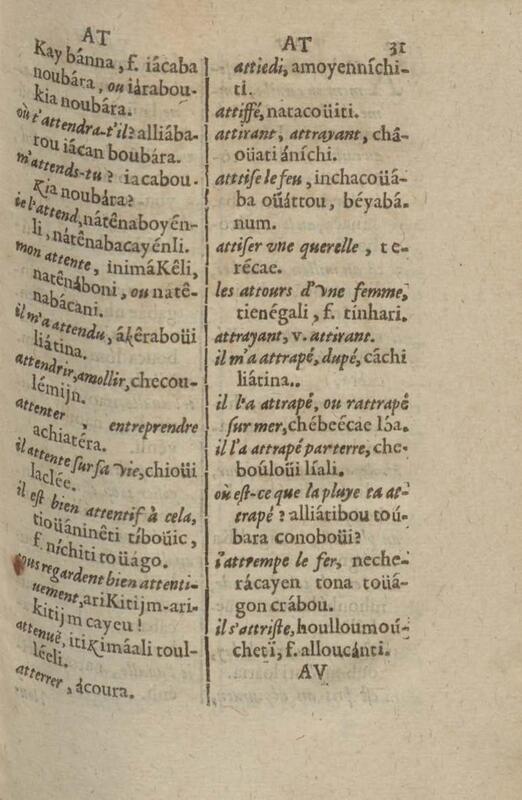 AT
Kay bánna, f. iácaba
noubára, ou iárabou-
kia noubára.
où t'attendra-t'il? alliába-
rou iácan boubára.
m'attends-tu? iacabou-
Kia noubára?
ie l'attend, nátênaboyén-
li, nátênabacayénli.
mon attente, inimáKêli,
natênáboni, ou natê-
nabácani.
il m'a attendu, áķêraboüi
liátina.
attendrir, amollir, checou-
lémijn.
attenter, entreprendre
achiatéra.
il attente sur sa vie, chioüi
laclée.
il est bien attentif à cela,
tioüáninêti tíboüic,
f. níchiti toüágo.
regardent bien attenti-
uement, ariKitijm-ari-
kitijm cayeu!
attenuë, itiKimáali toul-
léeli.
atterrer, ácoura.
AT 31
attiedi, amoyenníchi-
ti.
attiffé, natacoüiti.
attirant, attrayant, châ-
oüati áníchi.
atttise le feu, inchacoüá-
ba oüáttou, béyabá-
num.
attiser vne querelle, te-
récae.
les attours d'vne femme,
tienégali, f. tínhari.
attrayant, v. attirant.
il m'a attrapé, dupé, cáchi
liátina..
il l'a attrapé, ou rattrapé
sur mer, chébeécae lóa.
il l'a attrapé par terre, che-
boúloüi líali.
où est-ce que la pluye ta at-
trapé? alliátibou toú-
bara conoboüi?
i'attrempe le fer, neche-
rácayen tona toüá-
gon crábou.
il s'attriste, houlloumoú-
chetï, f. alloucánti.
AV